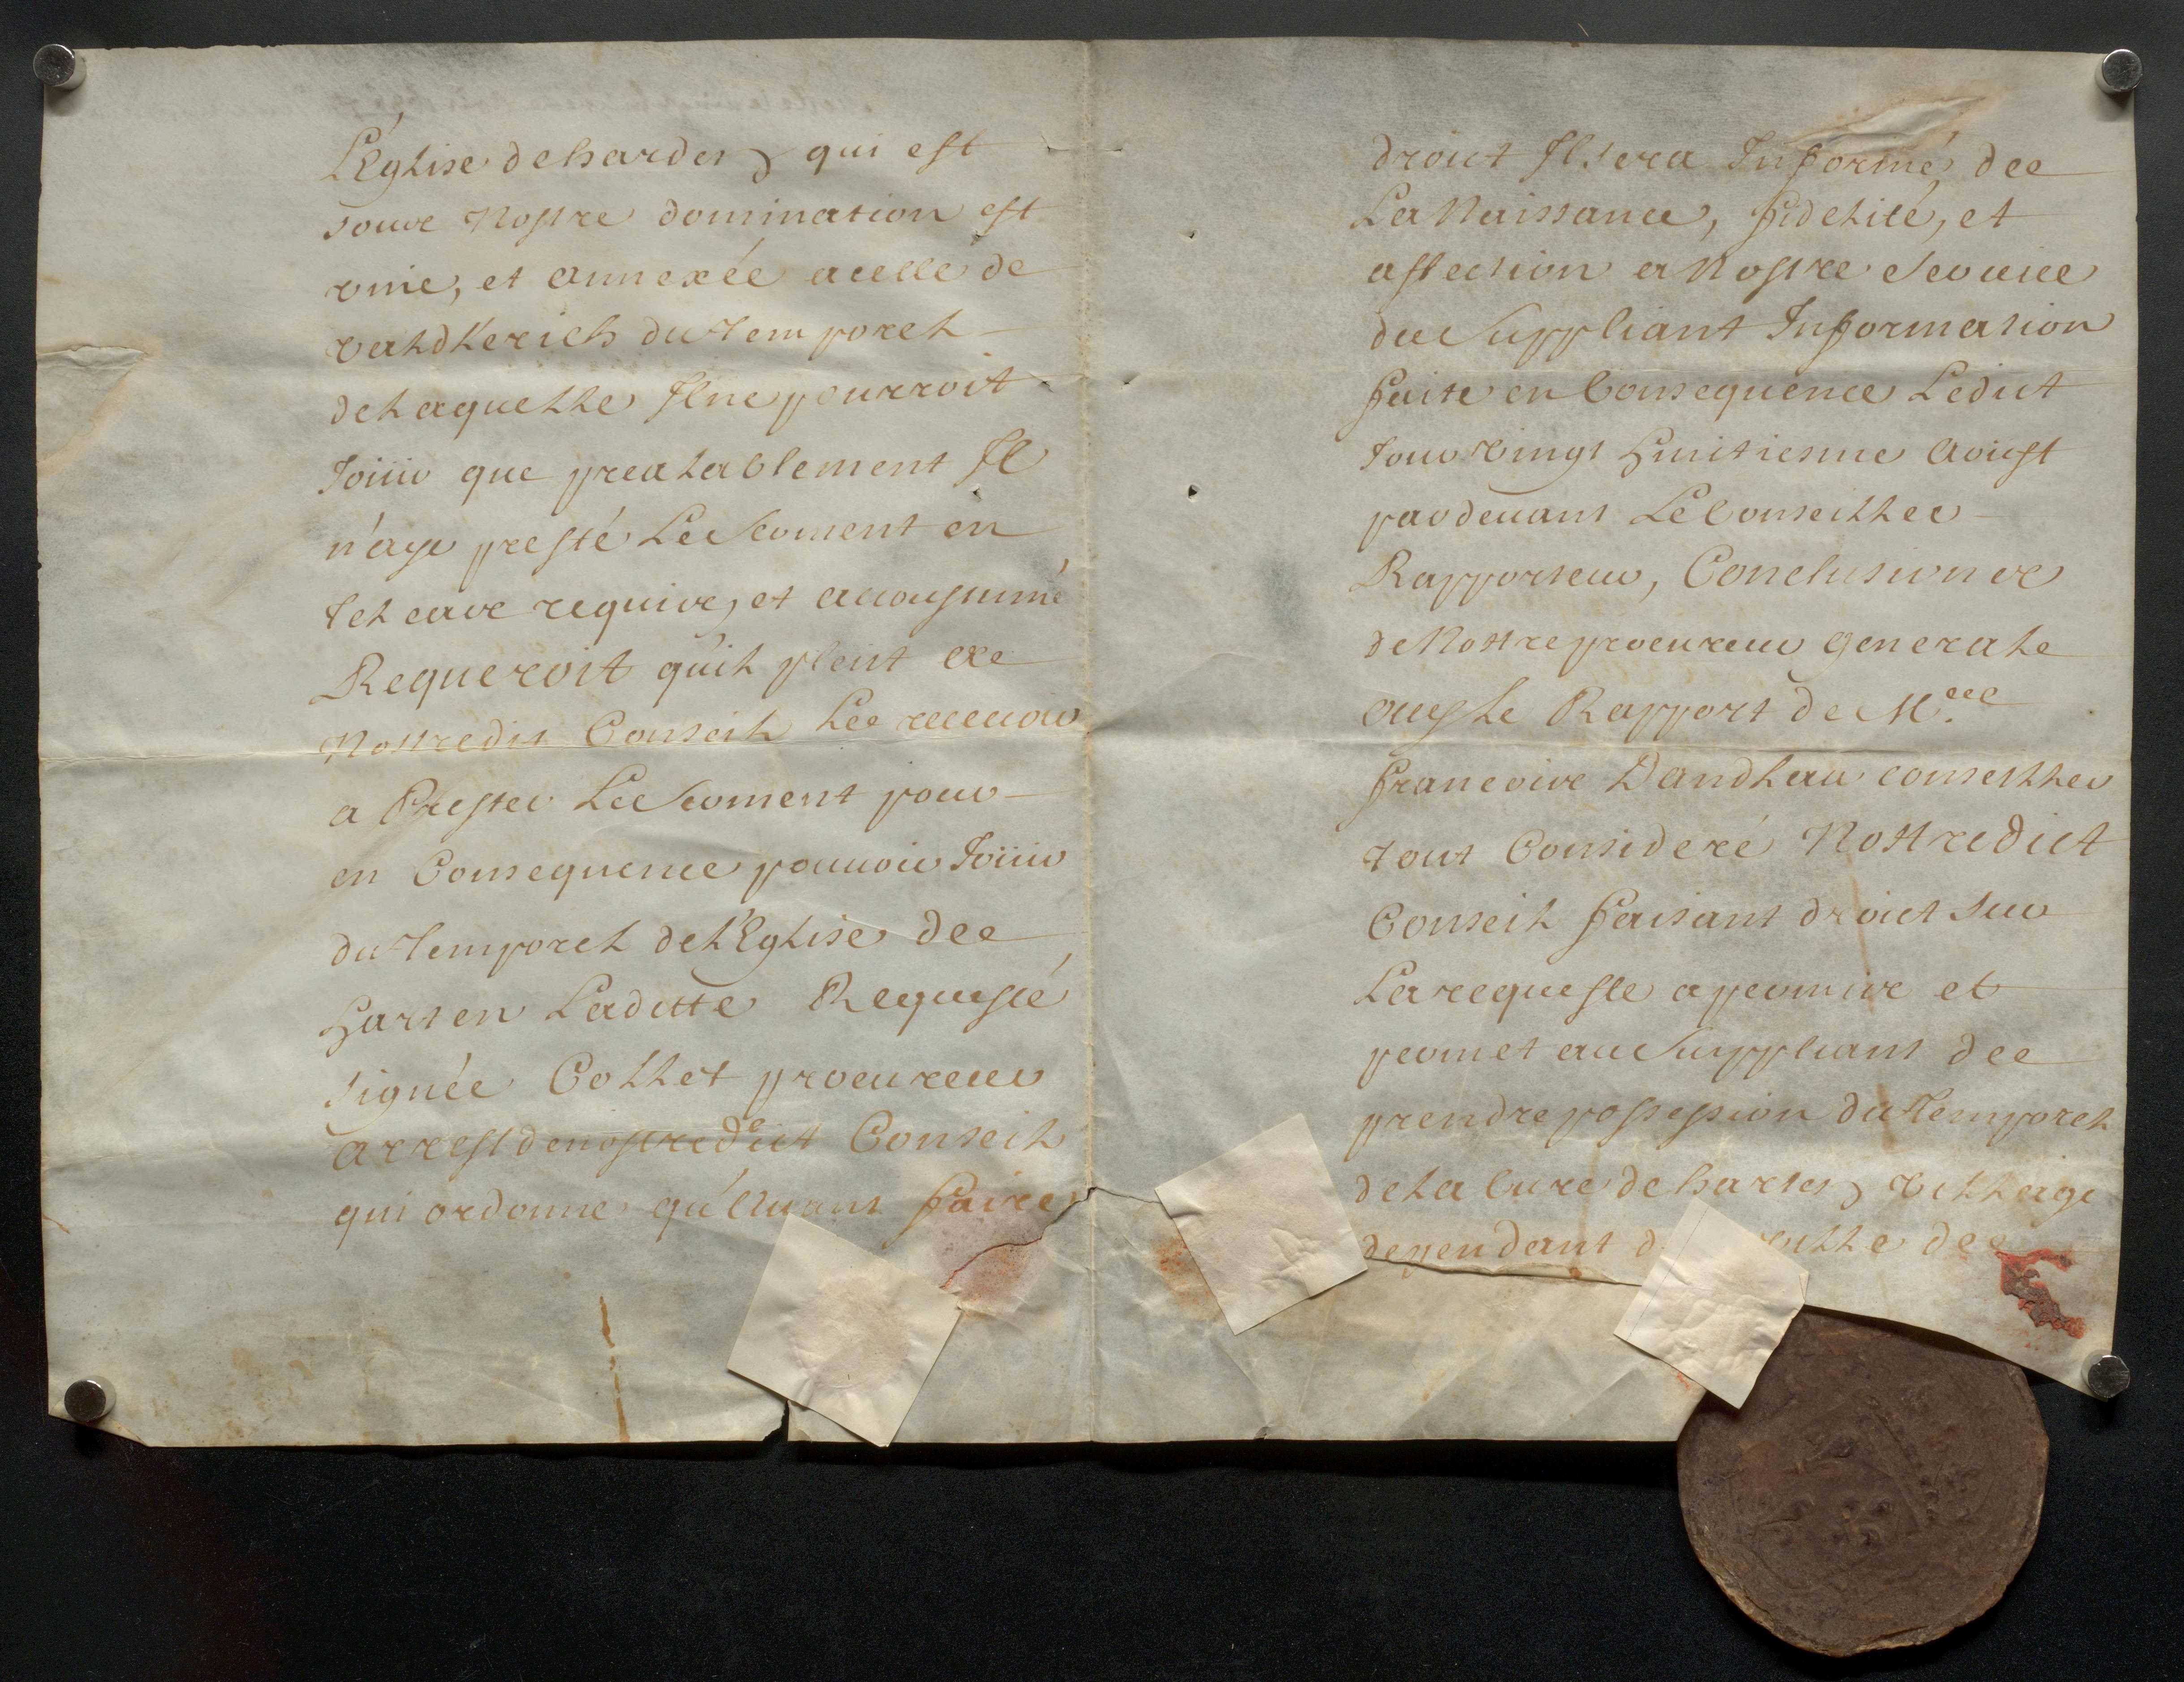 L'Eglise de harder, qui est
souz Nostre domination est
vnie, et annexée a celle de
valdkerich du Temporel
de laquelle Il ne pourroit
Joüir que prealablement Il
n'aye presté Le Serment en
tel cas requis, et accoustumé
Requeroit qu'il pleut a
Nostredit Conseil Le recevoir
a Prester Le Serment pour
en Consequence pouuoir Joüir
du Temporel de l'Eglise de
harten Laditte Requesté
signée Collet procureur
arrest de nostredict Conseil
qui ordonne qu'Auant faire
droict Il sera Informé de
La Naissance, fidelité, et
affection a Nostre Seruice
du Suppliant Information
faite en Consequence Ledict
Jour vingt huitiesme Aoust
pardeuant Le Conseiller
Rapporteur, Conclusions
de Nostre procureur general
ouy Le Rapport de M.re
francois Dandlau conseiller
tout Consideré Nostredict
Conseil faisant droict sur
La requeste a permis et
permet au Suppliant de
prendre possession du Temporel
de La Cure de harten, village
dependant d ville de